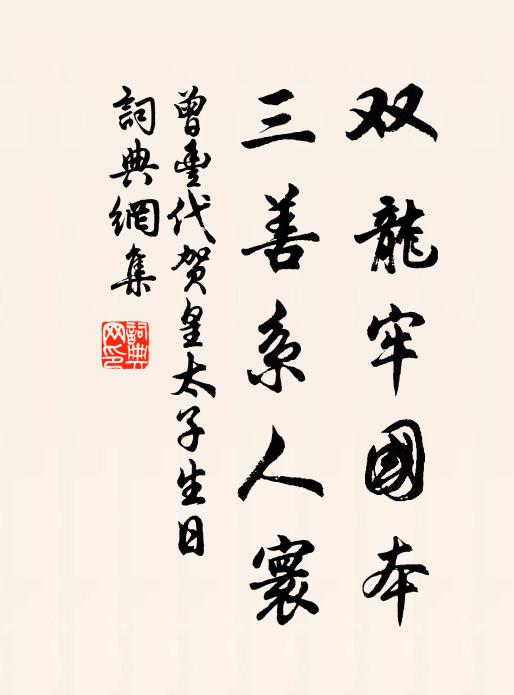 双龍牢國本
三善系人寰
曾豐代贺皇太子生日
詞典網集
詞典
网印